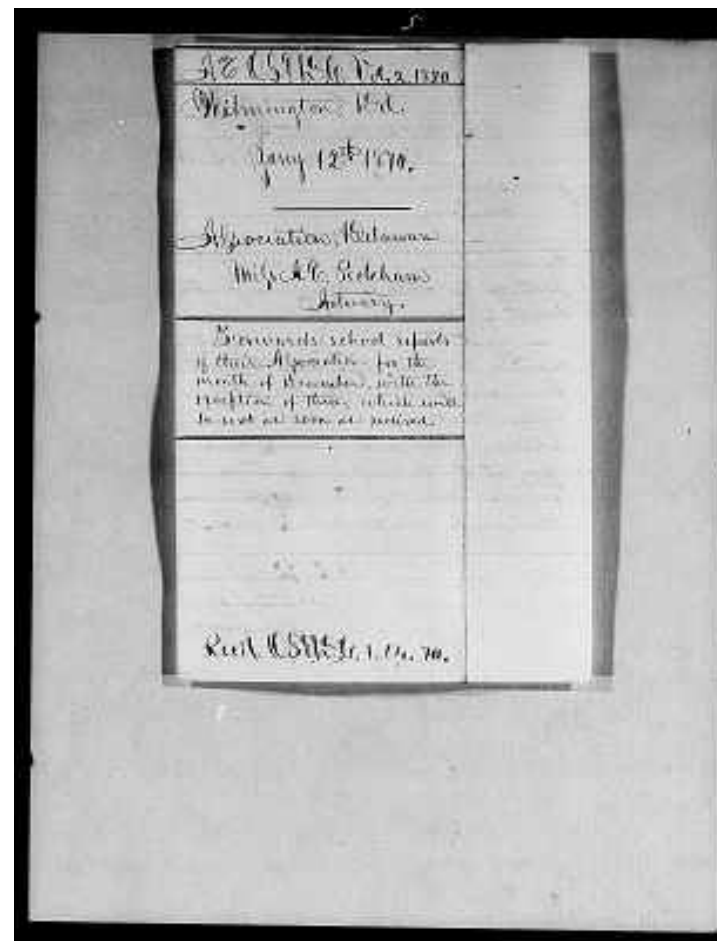 Wilmington, Del.
Jany 12th 1870.
Association, Delaware
Actuary.
Forwards school reports
of their Association for the
month of December, with the
exception of three, which will
be sent as soon as received.
Recd 1. 14. 70.